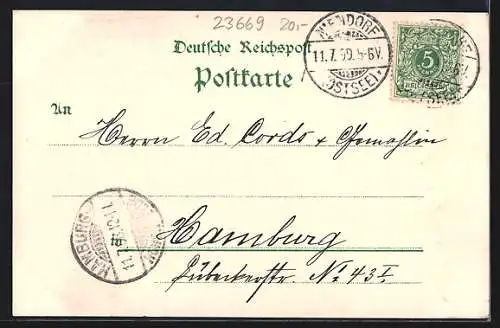 23669 20,-
NIENDORF
11.7.99.5-6V.
(OSTSEE)
5
Deutsche Reichspost
Postkarte
An
Herrn Ed. Cords & Gemahlin
in
Hamburg
Lübeckerstr. No 43 I
HAMBURG
11.7.